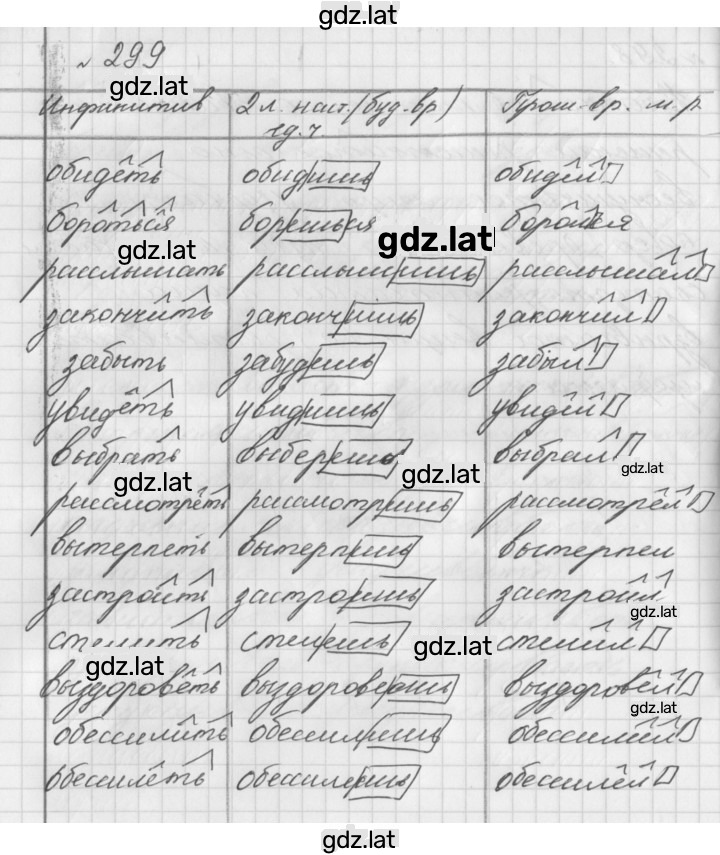 gdz.lat
№ 299
gdz.lat
Инфинитив 2 л. наст. (буд. вр) Прош. вр. м. р.
ед. ч.
обидеть обидишь обидел
бороться борешься боролся
gdz.lat gdz.lat
расслышать расслышишь расслышал
закончить закончишь закончил
забыть забудешь забыл
увидеть увидишь увидел
выбрать выберешь выбрал
gdz.lat gdz.lat gdz.lat
рассмотреть рассмотришь рассмотрел
вытерпеть вытерпишь вытерпел
застроить застроишь застроил
gdz.lat
gdz.lat gdz.lat
выздороветь выздоровеешь выздоровел
gdz.lat
обессилить обессилишь обессилил
обессилеть обессилеешь обессилел
gdz.lat